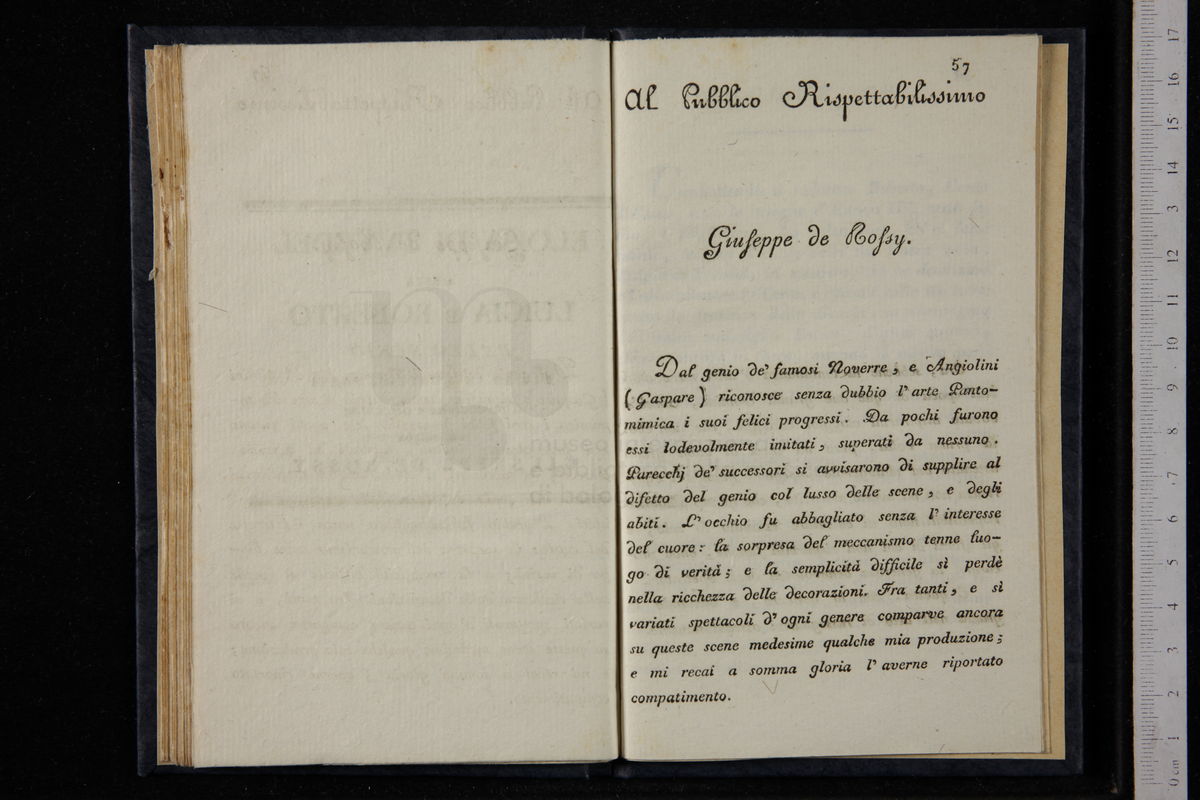 57
Al Pubblico Rispettabilissimo
Giuseppe de Rossy.
Dal genio de' famosi Noverre, e Angiolini
(Gaspare) riconosce senza dubbio l' arte Panto-
mimica i suoi felici progressi. Da pochi furono
essi lodevolmente imitati, superati da nessuno.
Parecchj de' successori si avvisarono di supplire al
difetto del genio col lusso delle scene, e degli
abiti. L' occhio fu abbagliato senza l' interesse
del cuore: la sorpresa del meccanismo tenne luo-
go di verità; e la semplicità difficile sì perdè
nella ricchezza delle decorazioni. Fra tanti, e sì
variati spettacoli d' ogni genere comparve ancora
su queste scene medesime qualche mia produzione;
e mi recai a somma gloria l' averne riportato
compatimento.
museo
e biblio
0 cm 1 2 3 4 5 6 7 8 9 10 11 12 3 14 15 16 17